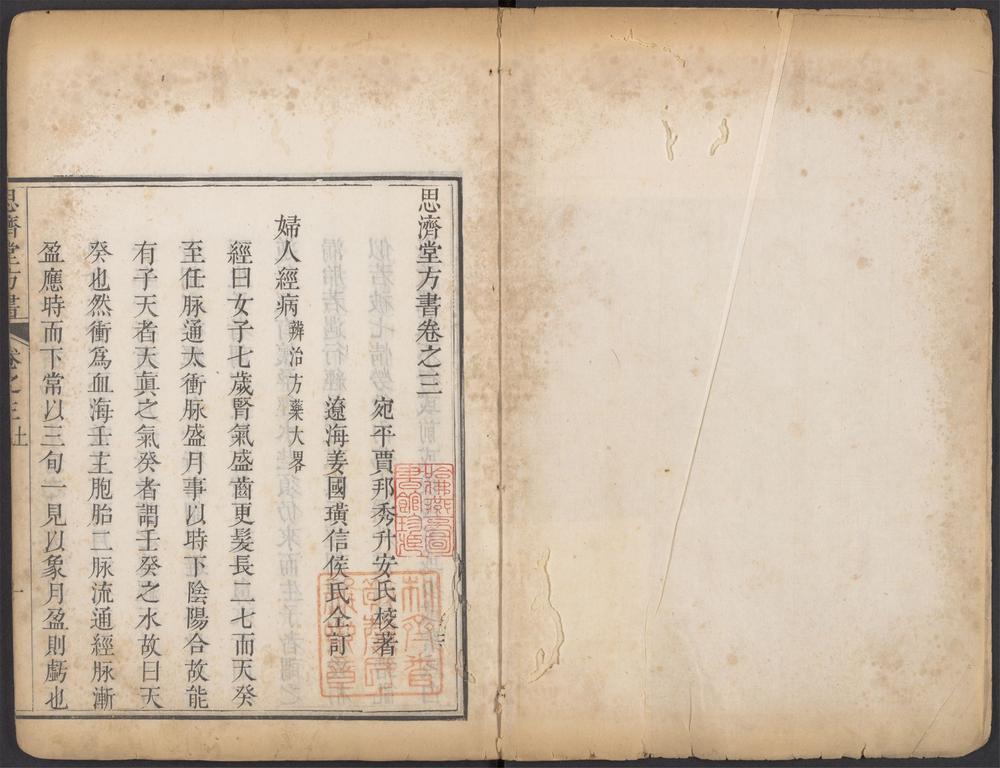 思濟堂方書卷之三
宛平賈邦秀升安氏校著
遼海姜國璜信侯氏仝訂
婦人經病辨治方藥大畧
經曰女子七歲腎氣盛齒更髮長二七而天癸
至任脉通太衝脉盛月事以時下陰陽合故能
有子天者天真之氣癸者謂壬癸之水故曰天
癸也然衝爲血海壬主胞胎二脉流通經脉漸
盈應時而下常以三旬一見以象月盈則虧也
思濟堂方書 卷之三上 一
哈佛燕京圖書館珍藏